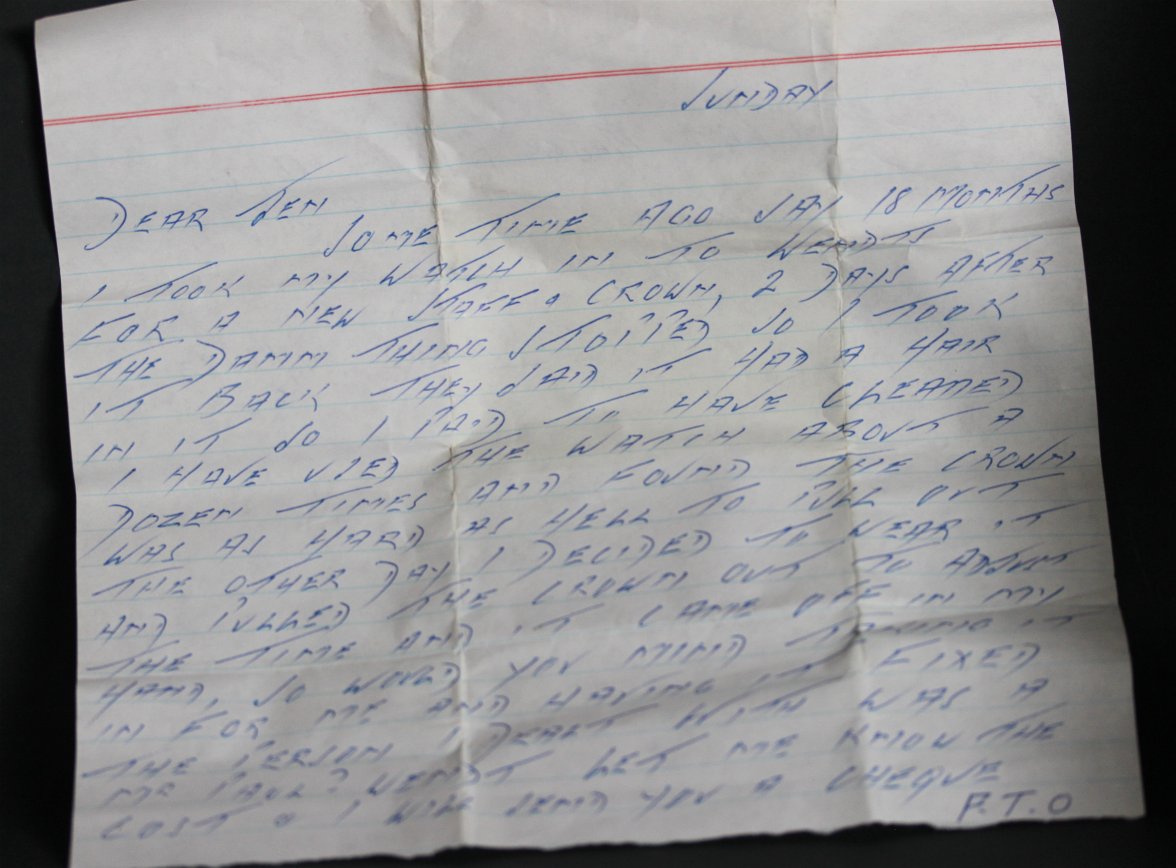 SUNDAY
DEAR JEN
SOME TIME AGO SAY 18 MONTHS
I TOOK MY WATCH IN TO WENDTS
FOR A NEW STAFF & CROWN, 2 DAYS AFTER
THE DAMN THING STOPPED SO I TOOK
IT BACK THEY SAID IT HAD A HAIR
IN IT SO I PAID TO HAVE CLEANED
I HAVE USED THE WATCH ABOUT A
DOZEN TIMES AND FOUND THE CROWN
WAS AS HARD AS HELL TO PULL OUT
THE OTHER DAY I DECIDED TO WEAR IT
AND PULLED THE CROWN OUT TO ADJUST
THE TIME AND IT CAME OFF IN MY
HAND, SO WOULD YOU MIND TAKING IT
IN FOR ME AND HAVING IT FIXED
THE PERSON I DEALT WITH WAS A
MR PAUL? WENDT LET ME KNOW THE
COST & I WILL SEND YOU A CHEQUE
P.T.O